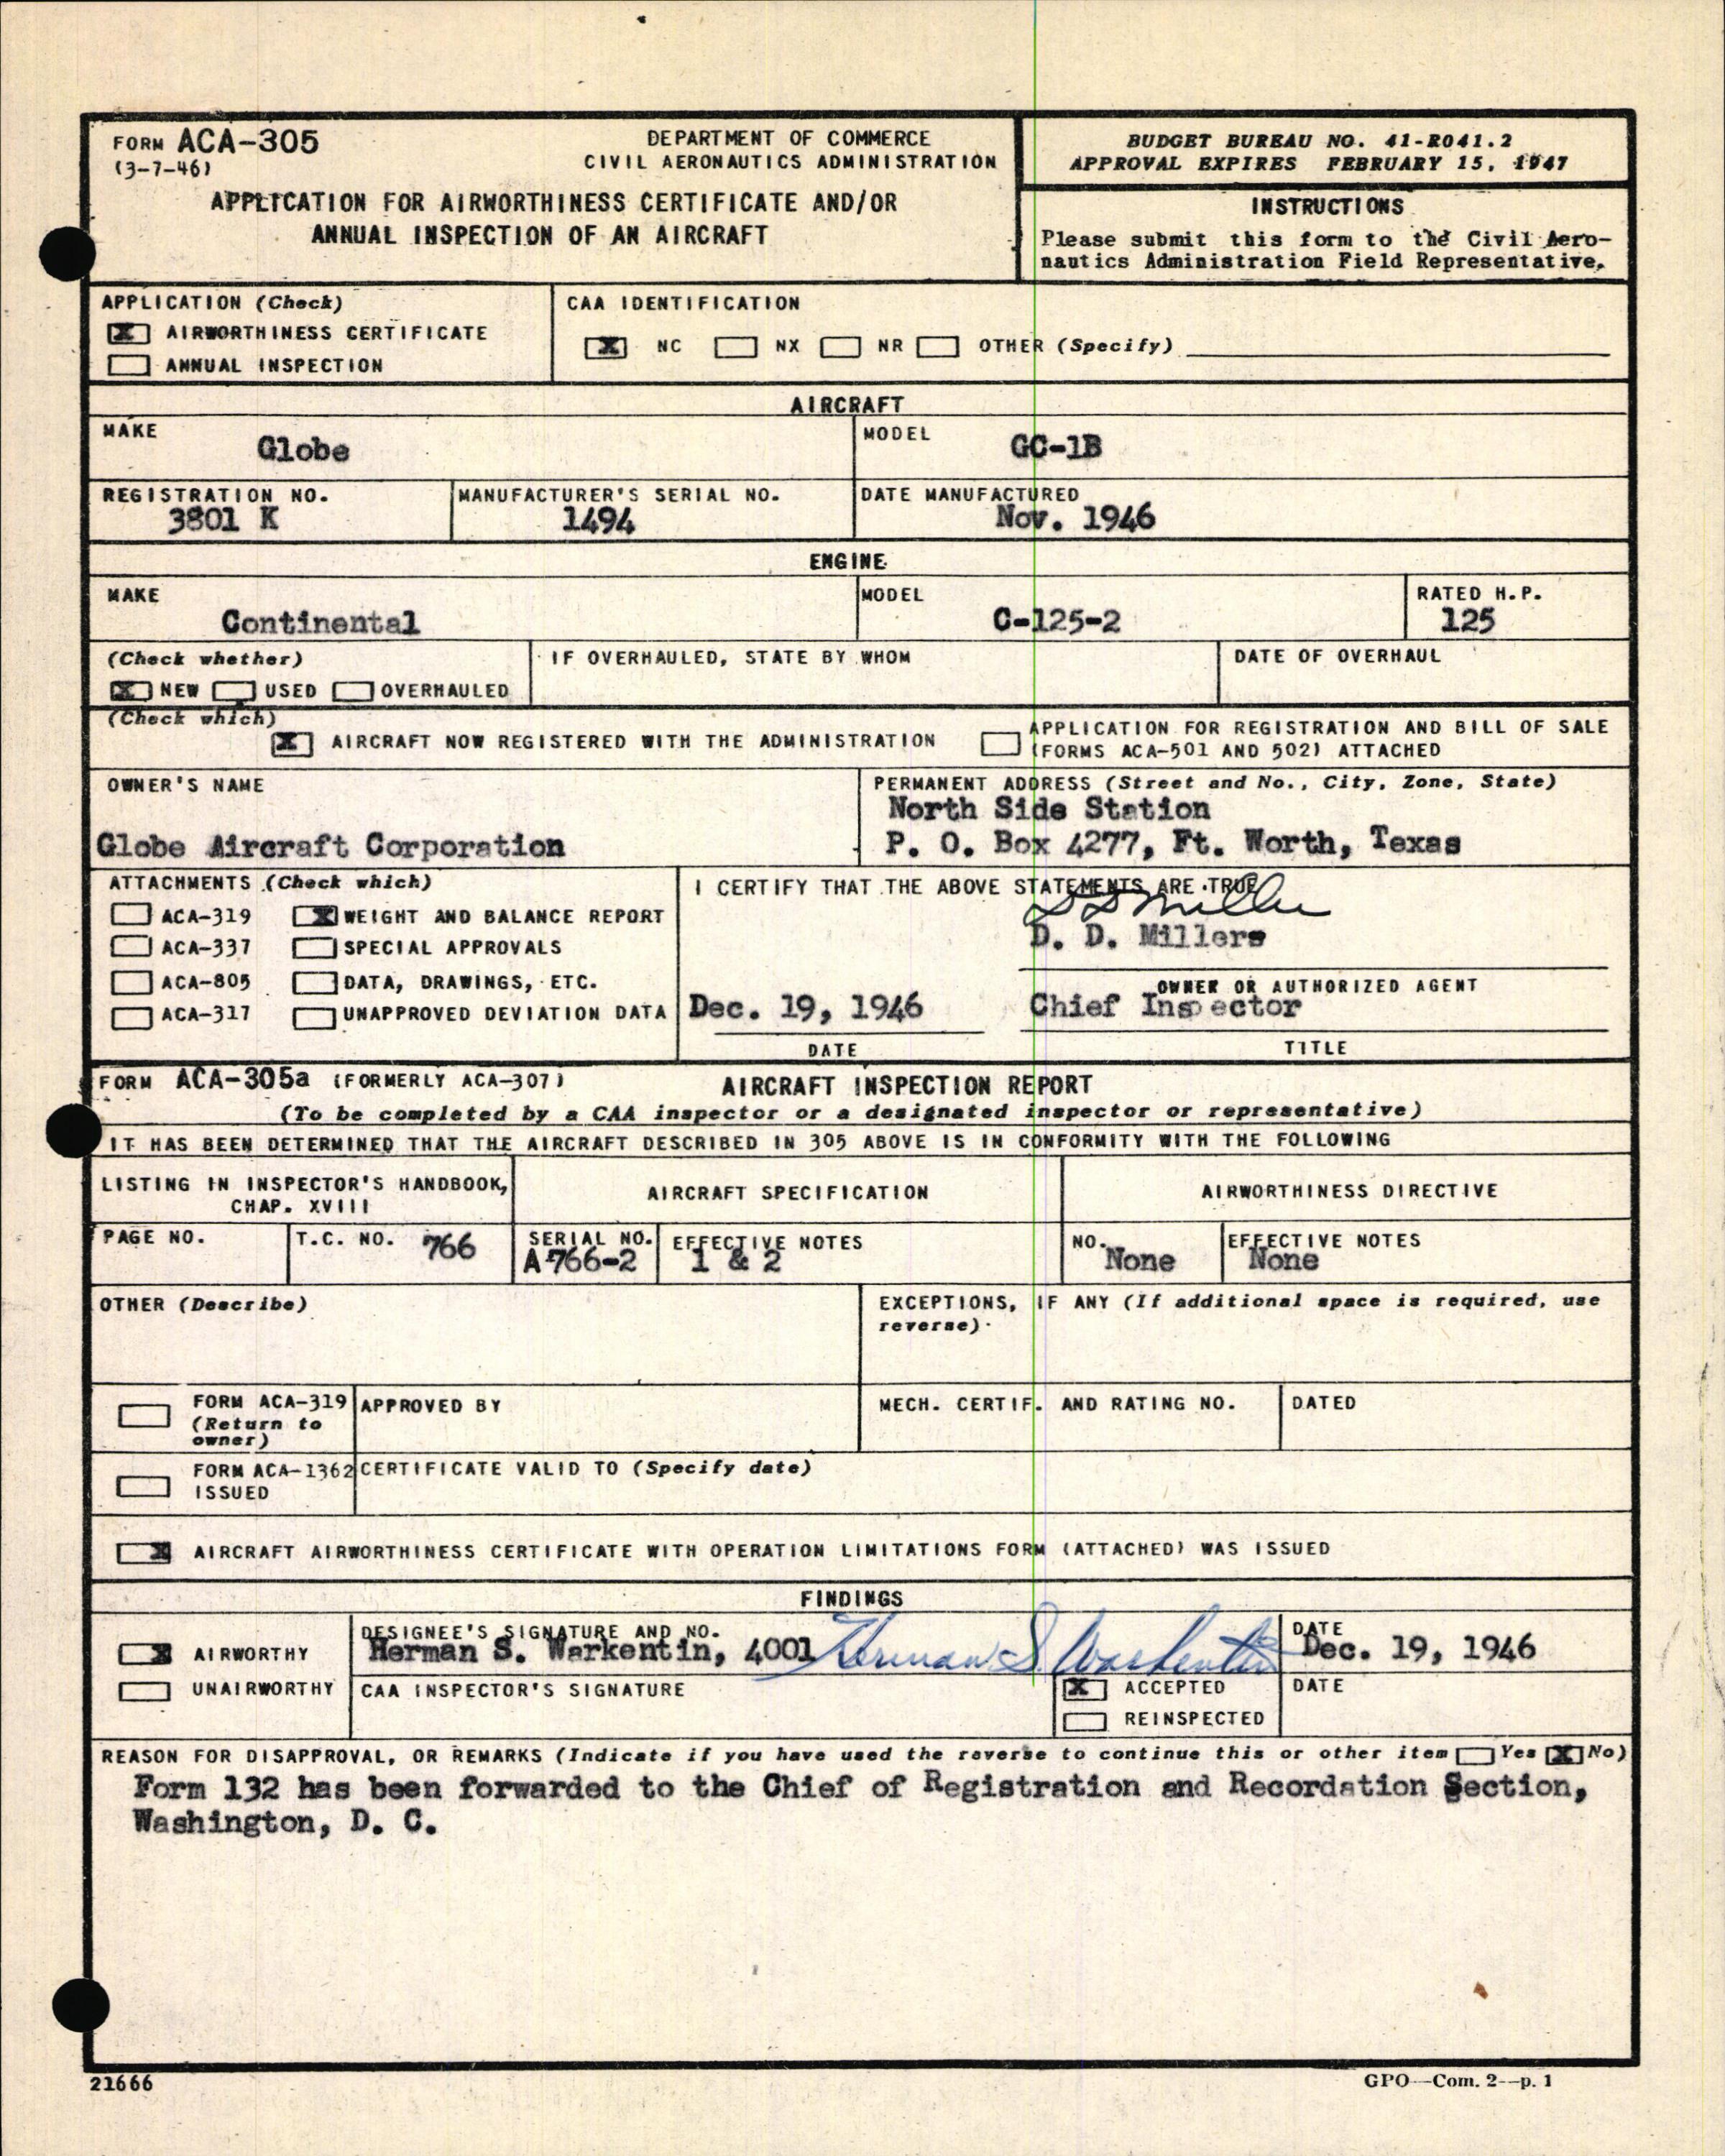 FORM ACA-305
(3-7-46)
DEPARTMENT OF COMMERCE
CIVIL AERONAUTICS ADMINISTRATION
APPLICATION FOR AIRWORTHINESS CERTIFICATE AND/OR
ANNUAL INSPECTION OF AN AIRCRAFT
BUDGET BUREAU NO. 41-R041.2
APPROVAL EXPIRES FEBRUARY 15, 1947
INSTRUCTIONS
Please submit this form to the Civil Aero-
nautics Administration Field Representative.
APPLICATION (Check)
X AIRWORTHINESS CERTIFICATE
ANNUAL INSPECTION
CAA IDENTIFICATION
X NC NX NR OTHER (Specify)
AIRCRAFT
MAKE
Globe
MODEL
GC-1B
REGISTRATION NO.
3801 K
MANUFACTURER'S SERIAL NO.
1494
DATE MANUFACTURED
Nov. 1946
ENGINE
MAKE
Continental
MODEL
C-125-2
RATED H.P.
125
(Check whether)
X NEW USED OVERHAULED
IF OVERHAULED, STATE BY WHOM
DATE OF OVERHAUL
(Check which)
X AIRCRAFT NOW REGISTERED WITH THE ADMINISTRATION
APPLICATION FOR REGISTRATION AND BILL OF SALE
(FORMS ACA-501 AND 502) ATTACHED
OWNER'S NAME
Globe Aircraft Corporation
PERMANENT ADDRESS (Street and No., City, Zone, State)
North Side Station
P. O. Box 4277, Ft. Worth, Texas
ATTACHMENTS (Check which)
ACA-319 X WEIGHT AND BALANCE REPORT
ACA-337 SPECIAL APPROVALS
ACA-805 DATA, DRAWINGS, ETC.
ACA-317 UNAPPROVED DEVIATION DATA
I CERTIFY THAT THE ABOVE STATEMENTS ARE TRUE
D D Miller
D. D. Millers
OWNER OR AUTHORIZED AGENT
Dec. 19, 1946 Chief Inspector
DATE TITLE
FORM ACA-305a (FORMERLY ACA-307) AIRCRAFT INSPECTION REPORT
(To be completed by a CAA inspector or a designated inspector or representative)
IT HAS BEEN DETERMINED THAT THE AIRCRAFT DESCRIBED IN 305 ABOVE IS IN CONFORMITY WITH THE FOLLOWING
LISTING IN INSPECTOR'S HANDBOOK,
CHAP. XVIII
AIRCRAFT SPECIFICATION
AIRWORTHINESS DIRECTIVE
PAGE NO.
T.C. NO. 766
SERIAL NO.
A-766-2
EFFECTIVE NOTES
1 & 2
NO.
None
EFFECTIVE NOTES
None
OTHER (Describe)
EXCEPTIONS, IF ANY (If additional space is required, use
reverse)
FORM ACA-319
(Return to
owner)
APPROVED BY
MECH. CERTIF. AND RATING NO.
DATED
FORM ACA-1362
ISSUED
CERTIFICATE VALID TO (Specify date)
X AIRCRAFT AIRWORTHINESS CERTIFICATE WITH OPERATION LIMITATIONS FORM (ATTACHED) WAS ISSUED
FINDINGS
X AIRWORTHY
UNAIRWORTHY
DESIGNEE'S SIGNATURE AND NO.
Herman S. Warkentin, 4001 Herman S. Warkentin
DATE
Dec. 19, 1946
CAA INSPECTOR'S SIGNATURE
X ACCEPTED
REINSPECTED
DATE
REASON FOR DISAPPROVAL, OR REMARKS (Indicate if you have used the reverse to continue this or other item Yes X No)
Form 132 has been forwarded to the Chief of Registration and Recordation Section,
Washington, D. C.
21666
GPO—Com. 2--p. 1